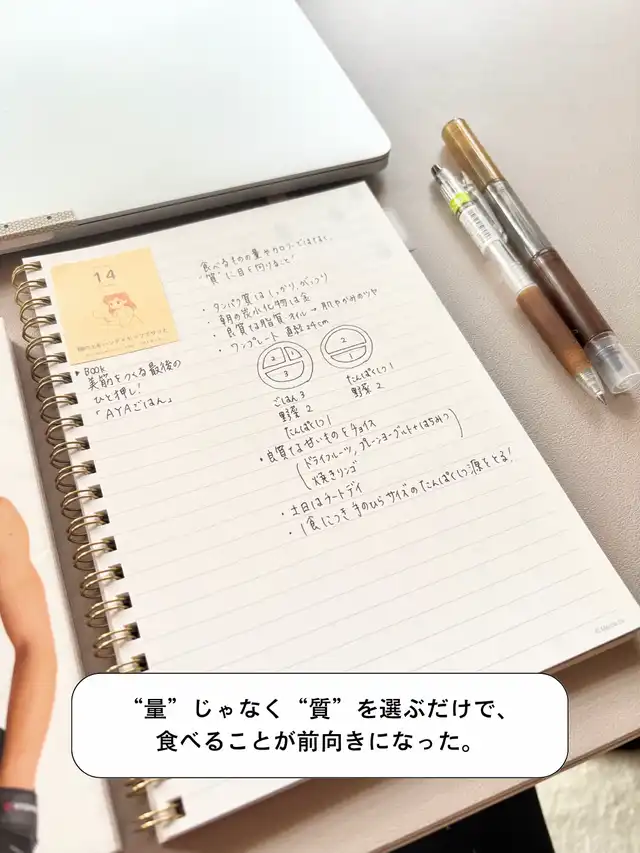 14
▸ Book
美筋をつくる最後の
ひと押し!
「AYAごはん」
食べるものの量やカロリーではなく、
"質"に目を向けること!
・タンパク質はしっかり、がっつり
・朝の炭水化物は金
・良質な脂質オイル → 肌やかみのツヤ
・ワンプレート 直径24cm
2 1
3
2
1
ごはん 3
野菜 2
たんぱく(し) 1
たんぱく(し) 1
野菜 2
・良質な甘いものをチョイス
(ドライフルーツ, プレーンヨーグルト+はちみつ
焼きリンゴ)
・土日はチートデイ
・1食につき 手のひらサイズのたんぱく(し)源をとる!
“量”じゃなく“質”を選ぶだけで、
食べることが前向きになった。